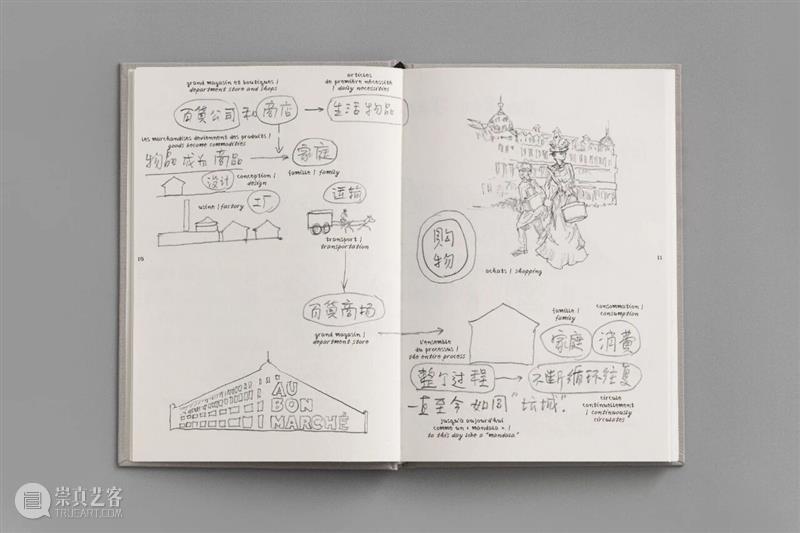 grand magasin et boutiques |
department store and shops
百货公司 和 商店 → 生活物品
articles
de première nécessité
| daily necessities
les marchandises deviennent des produits |
goods become commodities
物品成为商品
家庭
famille | family
设计
conception |
design
usine | factory
工厂
运输
transport |
transportation
10
百货商场
grand magasin |
department store
AU
BON
MARCHÉ
购
物
achats | shopping
11
famille |
family
consommation |
consumption
家庭
消费
l'ensemble
du processus |
the entire process
整个过程 → 不断循环往复
一直至今如同“坛城”.
jusqu'à aujourd'hui
comme un « mandala » |
to this day like a "mandala"
circule
continuellement
| continuously
circulates
崇真艺客
TRUEART.COM